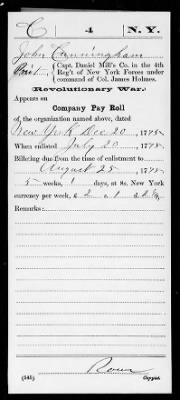 C 4 N.Y.
John Cunningham
Privt, Capt. Daniel Mill's Co. in the 4th
Reg't of New York Forces under
command of Col. James Holmes.
(Revolutionary War.)
Appears on
Company Pay Roll
of the organization named above, dated
New York Dec 20, 1775
When enlisted July 20, 1775
Billeting due from the time of enlistment to
August 25, 1775
5 weeks, 1 days, at 8s. New York
currency per week, £ 2 s 1 d
Remarks:
(545) Copyist.